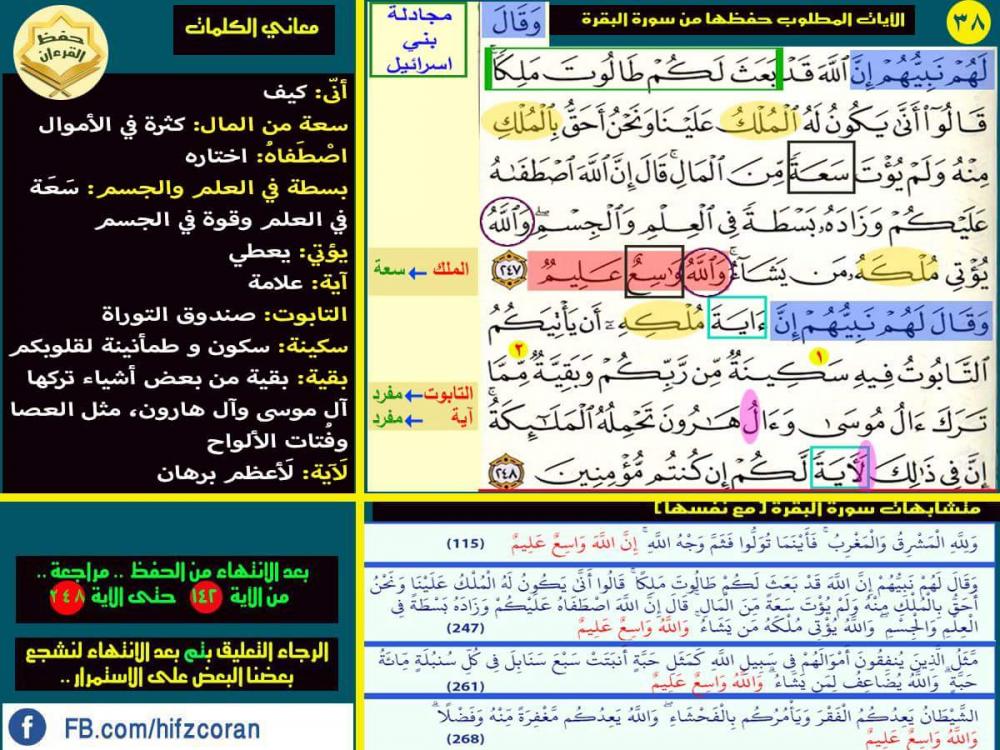 ٣٨
الايات المطلوب حفظها من سورة البقرة
وَقَالَ
لَهُمْ نَبِيُّهُمْ إِنَّ اللَّهَ قَدْ بَعَثَ لَكُمْ طَالُوتَ مَلِكًا ۚ
قَالُوٓا۟ أَنَّىٰ يَكُونُ لَهُ الْمُلْكُ عَلَيْنَا وَنَحْنُ أَحَقُّ بِالْمُلْكِ
مِنْهُ وَلَمْ يُؤْتَ سَعَةً مِّنَ الْمَالِ ۚ قَالَ إِنَّ اللَّهَ اصْطَفَىٰهُ
عَلَيْكُمْ وَزَادَهُۥ بَسْطَةً فِى الْعِلْمِ وَالْجِسْمِ ۖ وَاللَّهُ
يُؤْتِى مُلْكَهُۥ مَن يَشَآءُ ۚ وَاللَّهُ وَٰسِعٌ عَلِيمٌ ٢٤٧
وَقَالَ لَهُمْ نَبِيُّهُمْ إِنَّ ءَايَةَ مُلْكِهِۦٓ أَن يَأْتِيَكُمُ
١ ٢
التَّابُوتُ فِيهِ سَكِينَةٌ مِّن رَّبِّكُمْ وَبَقِيَّةٌ مِّمَّا
تَرَكَ ءَالُ مُوسَىٰ وَءَالُ هَٰرُونَ تَحْمِلُهُ الْمَلَٰٓئِكَةُ ۚ
إِنَّ فِى ذَٰلِكَ لَءَايَةً لَّكُمْ إِن كُنتُم مُّؤْمِنِينَ ٢٤٨
مجادلة
بني
اسرائيل
الملك ← سعة
التابوت ← مفرد
آية ← مفرد
حفظ
القرءان
معاني الكلمات
أنّى: كيف
سعة من المال: كثرة في الأموال
اصْطَفاهُ: اختاره
بسطة في العلم والجسم: سَعَة
في العلم وقوة في الجسم
يؤتي: يعطي
آية: علامة
التابوت: صندوق التوراة
سكينة: سكون و طمأنينة لقلوبكم
بقية: بقية من بعض أشياء تركها
آل موسى وآل هارون، مثل العصا
وفُتات الألواح
لَآية: لَأعظم برهان
متشابهات سورة البقرة [مع نفسها]
وَلِلَّهِ الْمَشْرِقُ وَالْمَغْرِبُ ۚ فَأَيْنَمَا تُوَلُّوا فَثَمَّ وَجْهُ اللَّهِ ۚ إِنَّ اللَّهَ وَاسِعٌ عَلِيمٌ (115)
وَقَالَ لَهُمْ نَبِيُّهُمْ إِنَّ اللَّهَ قَدْ بَعَثَ لَكُمْ طَالُوتَ مَلِكًا ۚ قَالُوا أَنَّىٰ يَكُونُ لَهُ الْمُلْكُ عَلَيْنَا وَنَحْنُ
أَحَقُّ بِالْمُلْكِ مِنْهُ وَلَمْ يُؤْتَ سَعَةً مِّنَ الْمَالِ ۚ قَالَ إِنَّ اللَّهَ اصْطَفَاهُ عَلَيْكُمْ وَزَادَهُ بَسْطَةً فِي
الْعِلْمِ وَالْجِسْمِ ۖ وَاللَّهُ يُؤْتِي مُلْكَهُ مَن يَشَاءُ ۚ وَاللَّهُ وَاسِعٌ عَلِيمٌ (247)
مَّثَلُ الَّذِينَ يُنفِقُونَ أَمْوَالَهُمْ فِي سَبِيلِ اللَّهِ كَمَثَلِ حَبَّةٍ أَنبَتَتْ سَبْعَ سَنَابِلَ فِي كُلِّ سُنبُلَةٍ مِّائَةُ
حَبَّةٍ ۗ وَاللَّهُ يُضَاعِفُ لِمَن يَشَاءُ ۗ وَاللَّهُ وَاسِعٌ عَلِيمٌ (261)
الشَّيْطَانُ يَعِدُكُمُ الْفَقْرَ وَيَأْمُرُكُم بِالْفَحْشَاءِ ۖ وَاللَّهُ يَعِدُكُم مَّغْفِرَةً مِّنْهُ وَفَضْلًا ۗ
وَاللَّهُ وَاسِعٌ عَلِيمٌ (268)
بعد الانتهاء من الحفظ .. مراجعة ..
من الاية ١٤٢ حتى الاية ٢٤٨
الرجاء التعليق بتم بعد الانتهاء لنشجع
بعضنا البعض على الاستمرار ..
f FB.com/hifzcoran